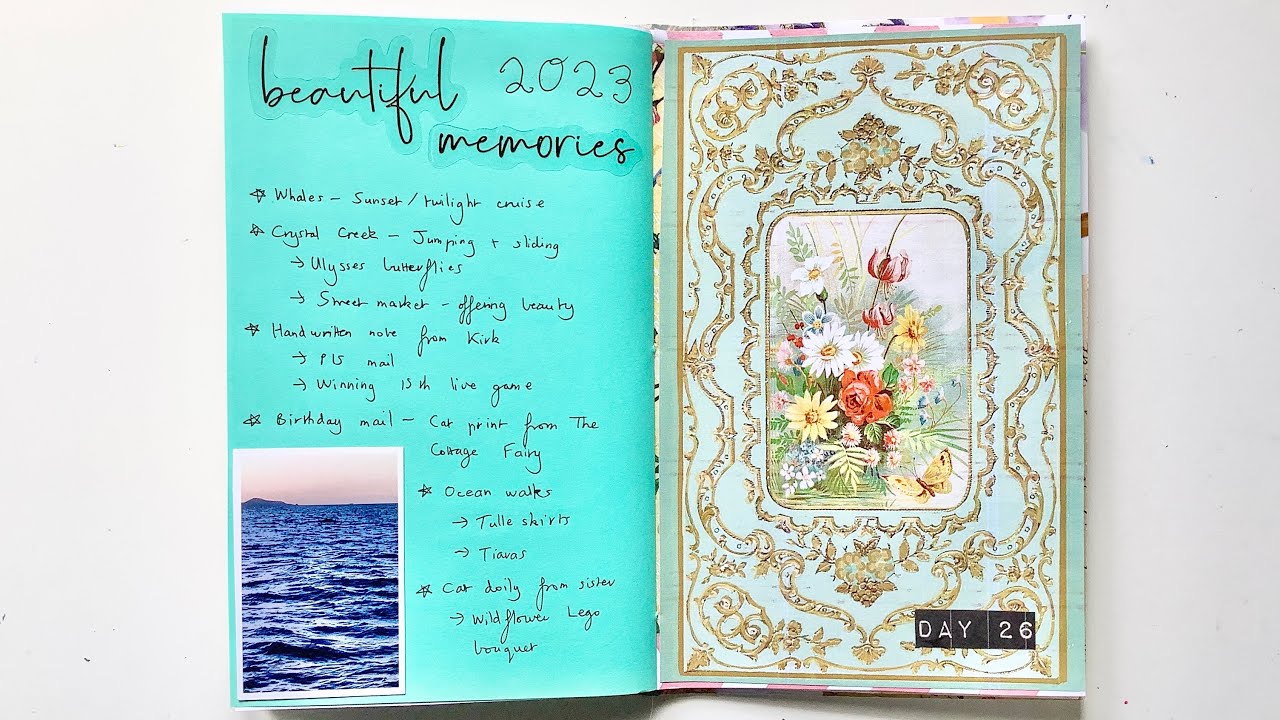 beautiful 2023
memories
☆ Whales - Sunset/twilight cruise
☆ Crystal Creek - Jumping + sliding
→ Ulysses butterflies
→ Street market - offering beauty
☆ Handwritten note from Kirk
→ PLS mail
→ Winning 15th live game
☆ Birthday mail - Cat print from The
Cottage Fairy
☆ Ocean walks
→ Tulle skirts
→ Tiaras
☆ Cat doily from sister
→ Wildflower Lego
bouquet
DAY 26